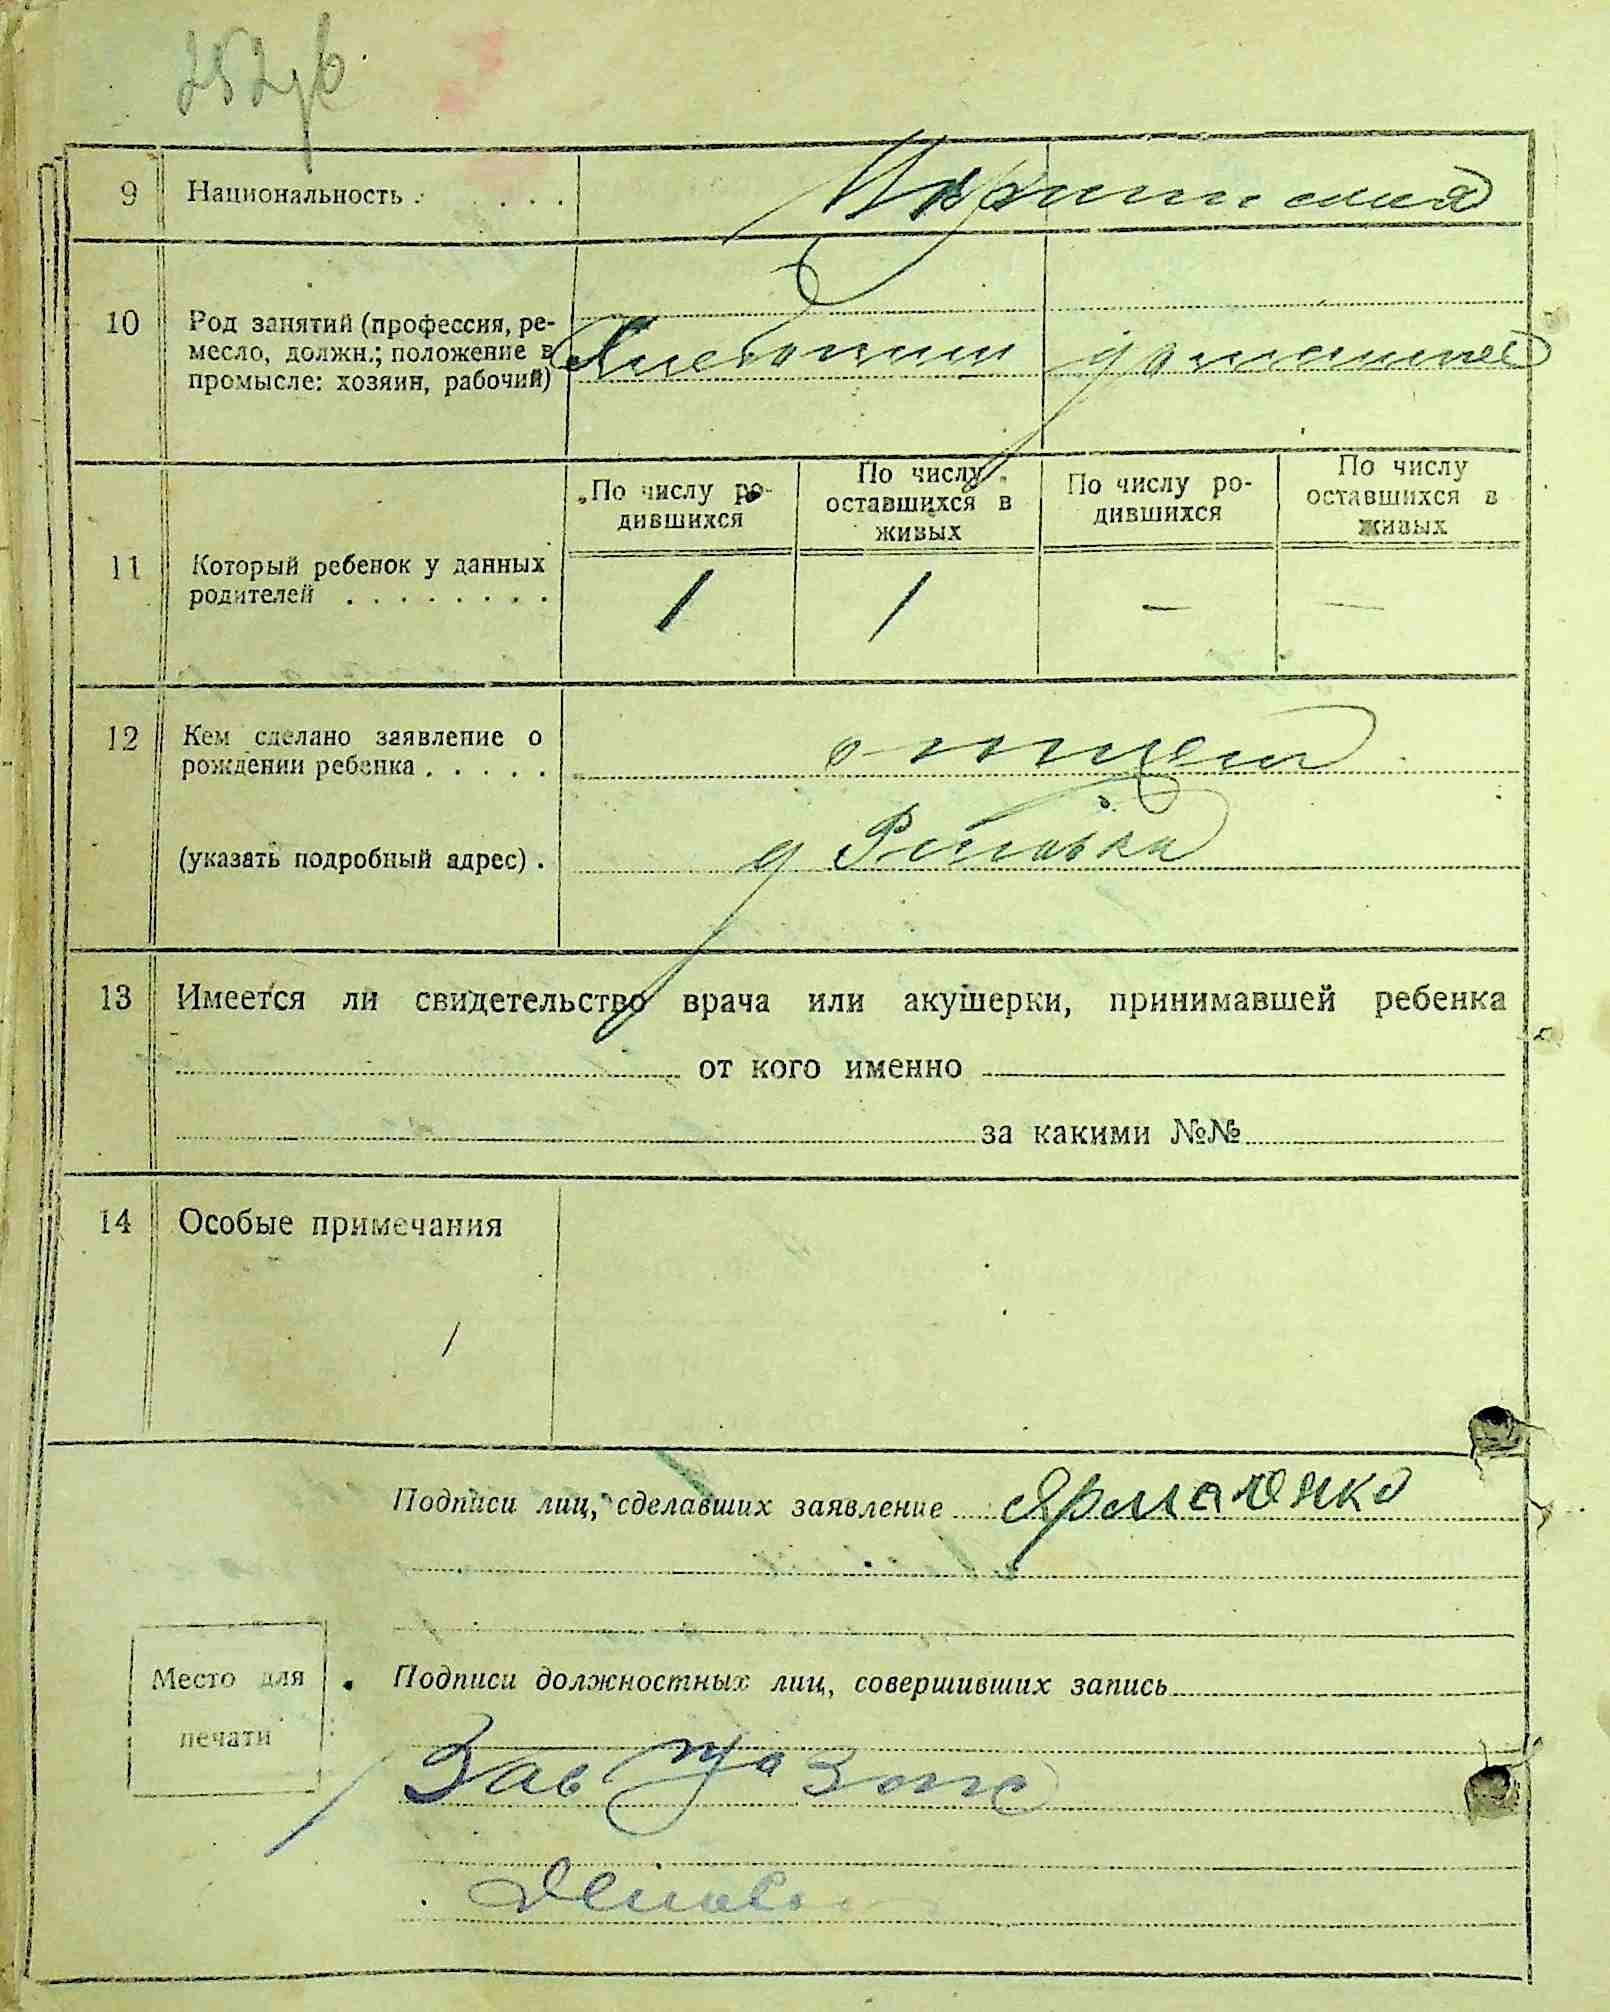 9 Национальность . . . . Украинская
10 Род занятий (профессия, ре-
месло, должн.; положение в
промысле: хозяин, рабочий) Хлебопаш домашнее
По числу ро-
дившихся
По числу
оставшихся в
живых
По числу ро-
дившихся
По числу
оставшихся в
живых
11 Который ребенок у данных
родителей . . . . . . . . 1 1 — —
12 Кем сделано заявление о
рождении ребенка . . . . . отцем
(указать подробный адрес) . д
13 Имеется ли свидетельство врача или акушерки, принимавшей ребенка
от кого именно
за какими №№
14 Особые примечания
Подписи лиц, сделавших заявление Ярмаленко
Место для
печати
Подписи должностных лиц, совершивших запись
Зав